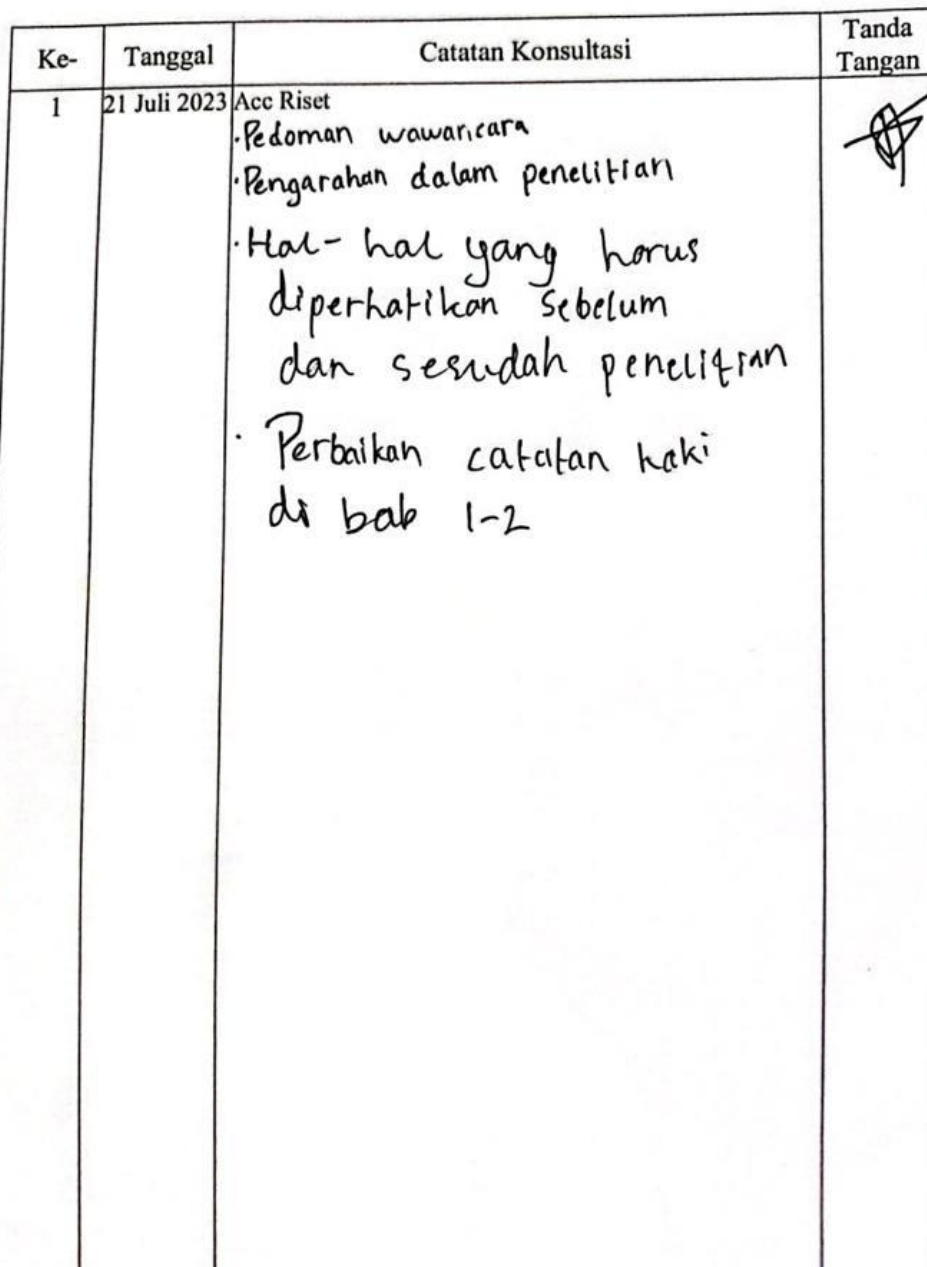 Ke- Tanggal Catatan Konsultasi Tanda Tangan
1 21 Juli 2023 Acc Riset
·Pedoman wawancara
·Pengarahan dalam penelitian
·Hal-hal yang harus
diperhatikan sebelum
dan sesudah penelitian
· Perbaikan catatan kaki
di bab 1-2